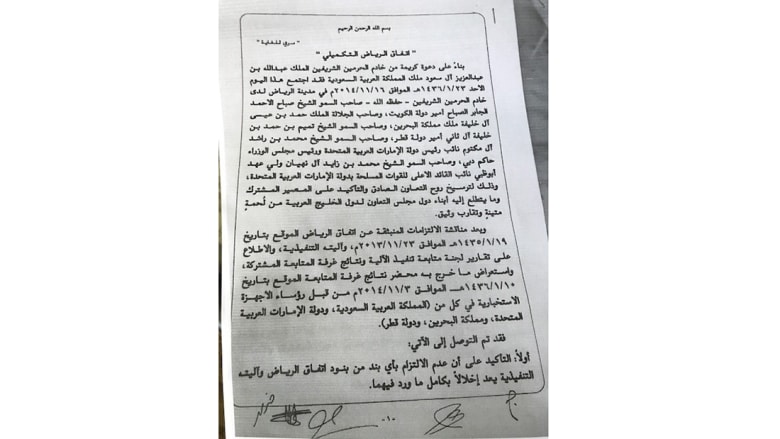 بسم الله الرحمن الرحيم
" سري للغاية "
" اتفاق الرياض التكميلي "
بناءً على دعوة كريمة من خادم الحرمين الشريفين الملك عبدالله بن
عبدالعزيز آل سعود ملك المملكة العربية السعودية فقد اجتمع هذا اليوم
الاحد ١٤٣٦/١/٢٣هـ الموافق ٢٠١٤/١١/١٦م في مدينة الرياض لدى
خادم الحرمين الشريفين - حفظه الله - صاحب السمو الشيخ صباح الاحمد
الجابر الصباح أمير دولة الكويت، وصاحب الجلالة الملك حمد بن عيسى
آل خليفة ملك مملكة البحرين، وصاحب السمو الشيخ تميم بن حمد بن
خليفة آل ثاني أمير دولة قطر، وصاحب السمو الشيخ محمد بن راشد
آل مكتوم نائب رئيس دولة الإمارات العربية المتحدة ورئيس مجلس الوزراء
حاكم دبي، وصاحب السمو الشيخ محمد بن زايد آل نهيان ولي عهد
أبوظبي نائب القائد الاعلى للقوات المسلحة بدولة الإمارات العربية المتحدة،
وذلك لترسيخ روح التعاون الصادق والتأكيد على المصير المشترك
وما يتطلع إليه أبناء دول مجلس التعاون لدول الخليج العربية من لُحمةٍ
متينةٍ وتقارب وثيق.
وبعد مناقشة الالتزامات المنبثقة عن اتفاق الرياض الموقع بتاريخ
١٤٣٥/١/١٩هـ الموافق ٢٠١٣/١١/٢٣م، وآليته التنفيذية، والاطلاع
على تقارير لجنة متابعة تنفيذ الآلية ونتائج غرفة المتابعة المشتركة،
واستعراض ما خرج به محضر نتائج غرفة المتابعة الموقع بتاريخ
١٤٣٦/١/١٠هـ الموافق ٢٠١٤/١١/٣م من قبل رؤساء الأجهزة
الاستخبارية في كل من (المملكة العربية السعودية، ودولة الإمارات العربية
المتحدة، ومملكة البحرين، ودولة قطر).
فقد تم التوصل إلى الآتي:
أولاً: التأكيد على أن عدم الالتزام بأي بند من بنود اتفاق الرياض وآليته
التنفيذية يعد إخلالاً بكامل ما ورد فيهما.
-١٠-